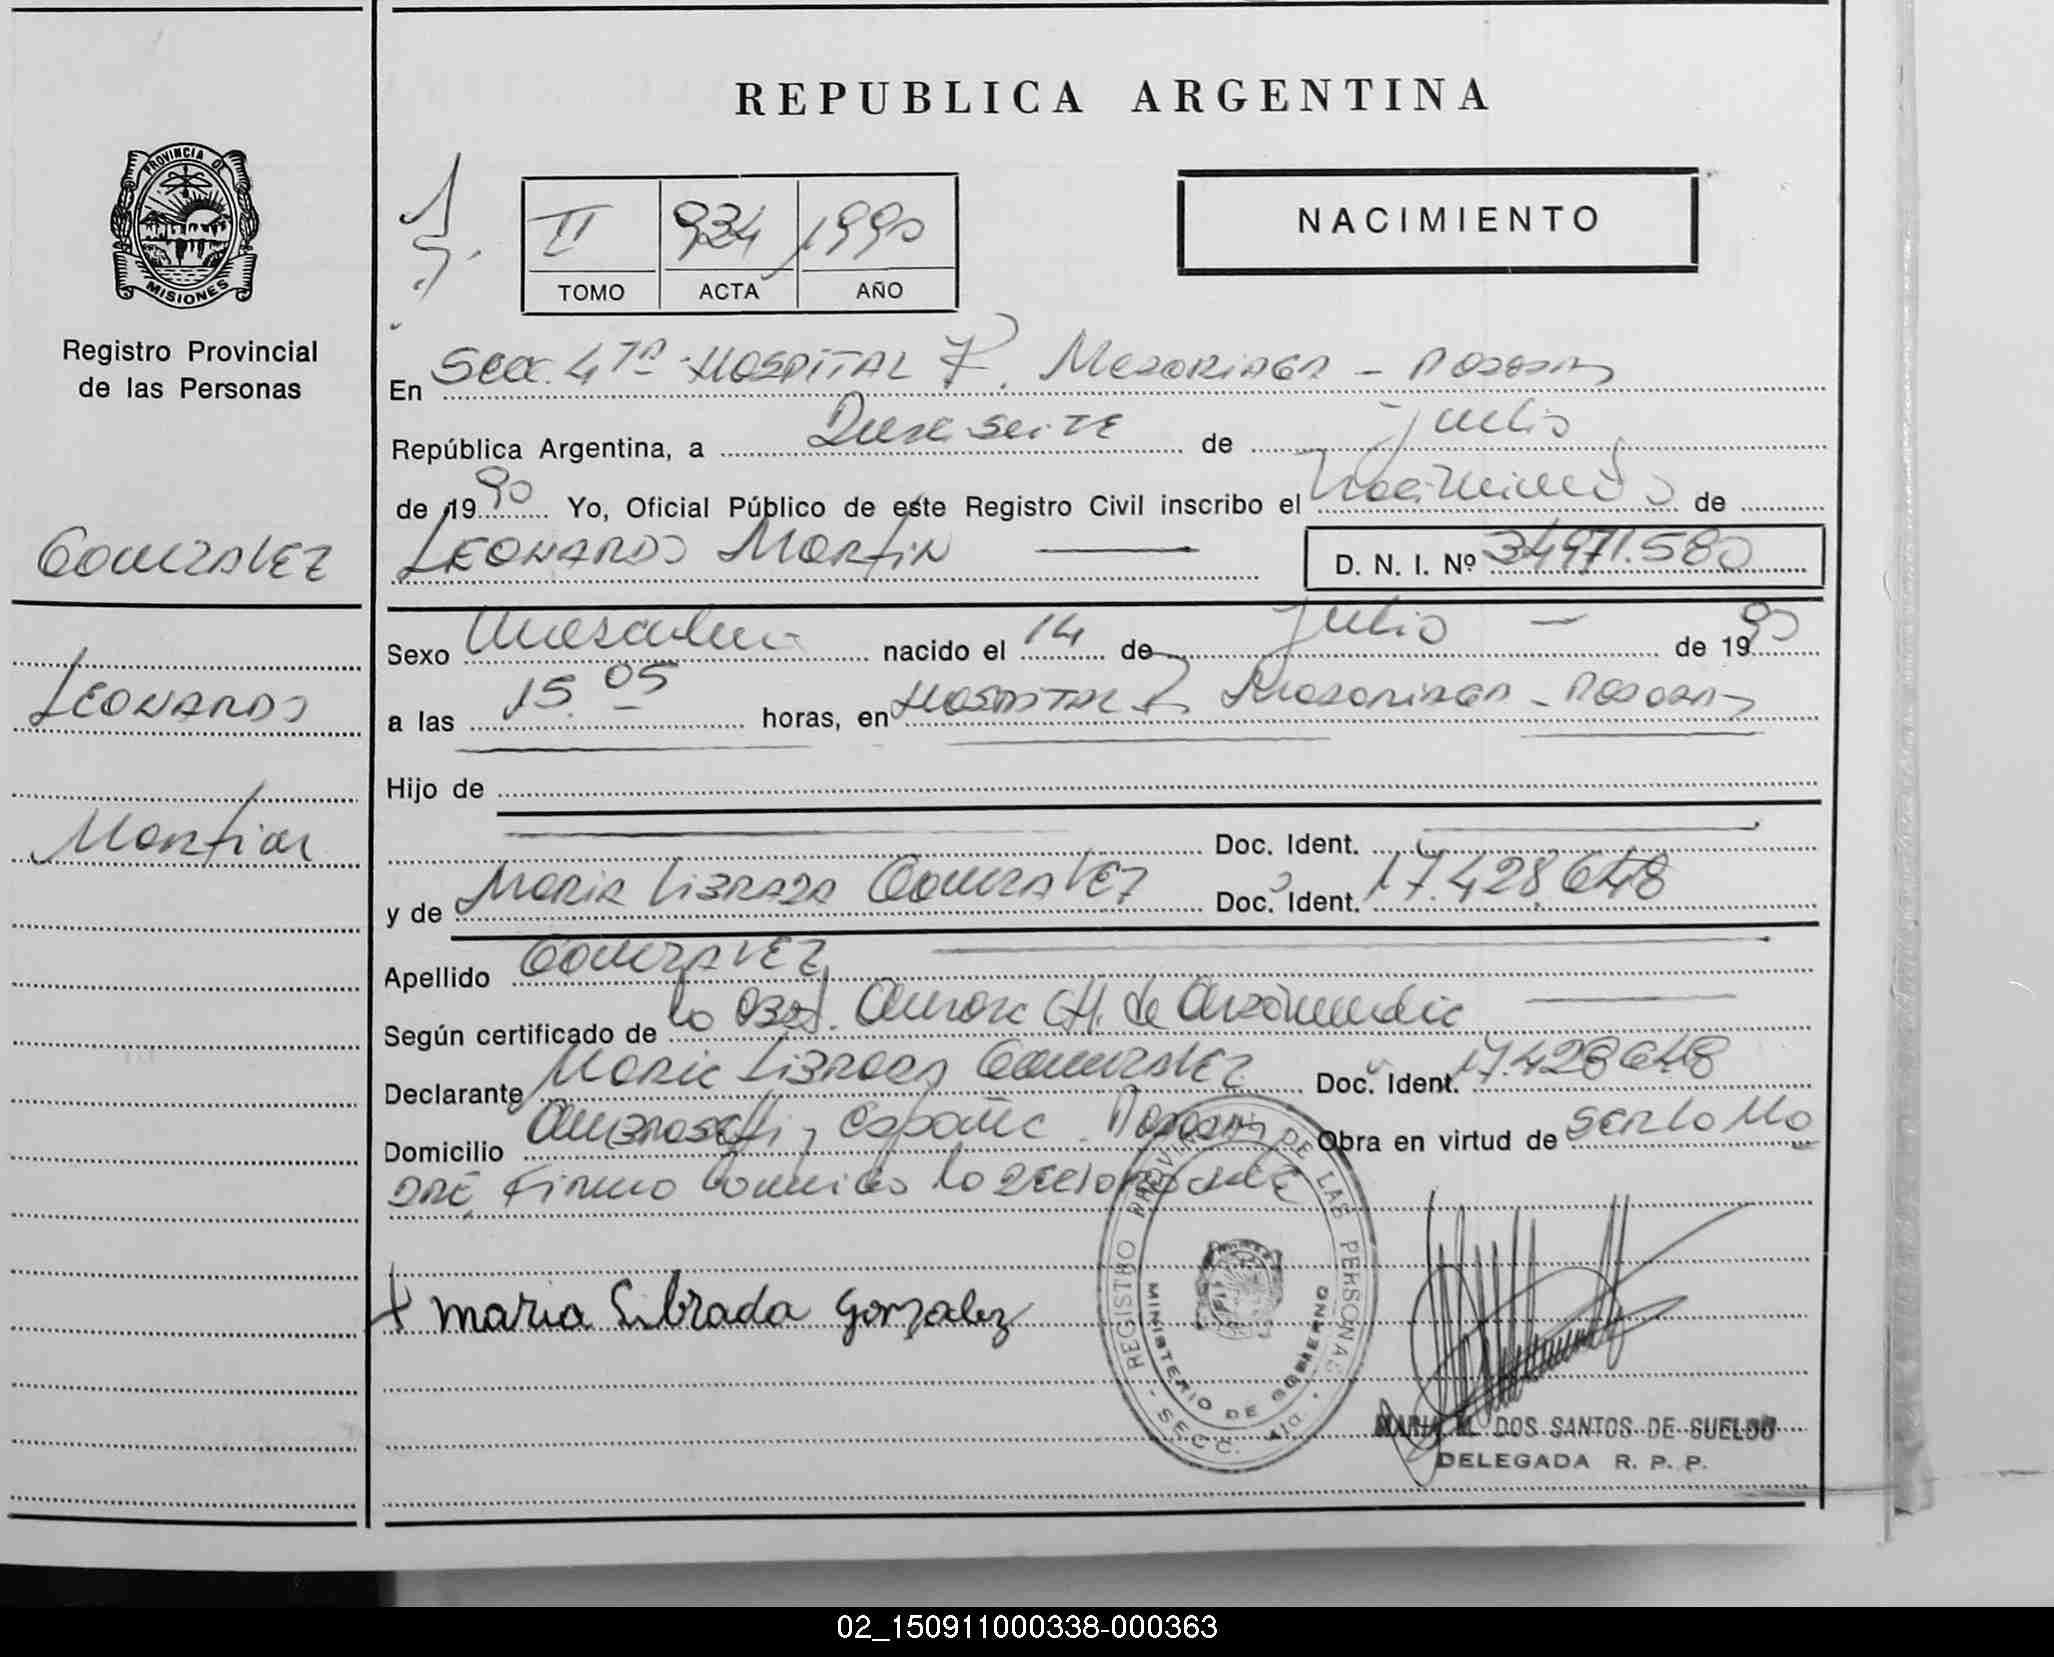 REPUBLICA ARGENTINA
PROVINCIA DE
MISIONES
Registro Provincial
de las Personas
II 934 1990
TOMO ACTA AÑO
NACIMIENTO
En Secc. 4TA HOSPITAL R. MADARIAGA - POSADAS
República Argentina, a Diecisiete de julio
de 1990 Yo, Oficial Público de este Registro Civil inscribo el Nacimiento de
LEONARDO MARTIN
D. N. I. Nº 34971.580
GONZALEZ
LEONARDO
MARTIN
Sexo Masculino nacido el 14 de julio de 1990
a las 15.05 horas, en HOSPITAL R MADARIAGA - POSADAS
Hijo de
Doc. Ident.
y de MARIA LIBRADA GONZALEZ Doc. Ident. 17.428.648
Apellido GONZALEZ
Según certificado de la Obst. Aurora H. de
Declarante MARIA LIBRADA GONZALEZ Doc. Ident. 17.428.648
Domicilio Ambrosetti y España. Posadas Obra en virtud de SER LA MA
DRE, Firma conmigo la declarante
Maria Librada Gonzalez
REGISTRO PROVINCIAL DE LAS PERSONAS
MINISTERIO DE GOBIERNO
SECC. 4ta.
MARIA M. DOS SANTOS DE SUELDO
DELEGADA R. P. P.
02_150911000338-000363